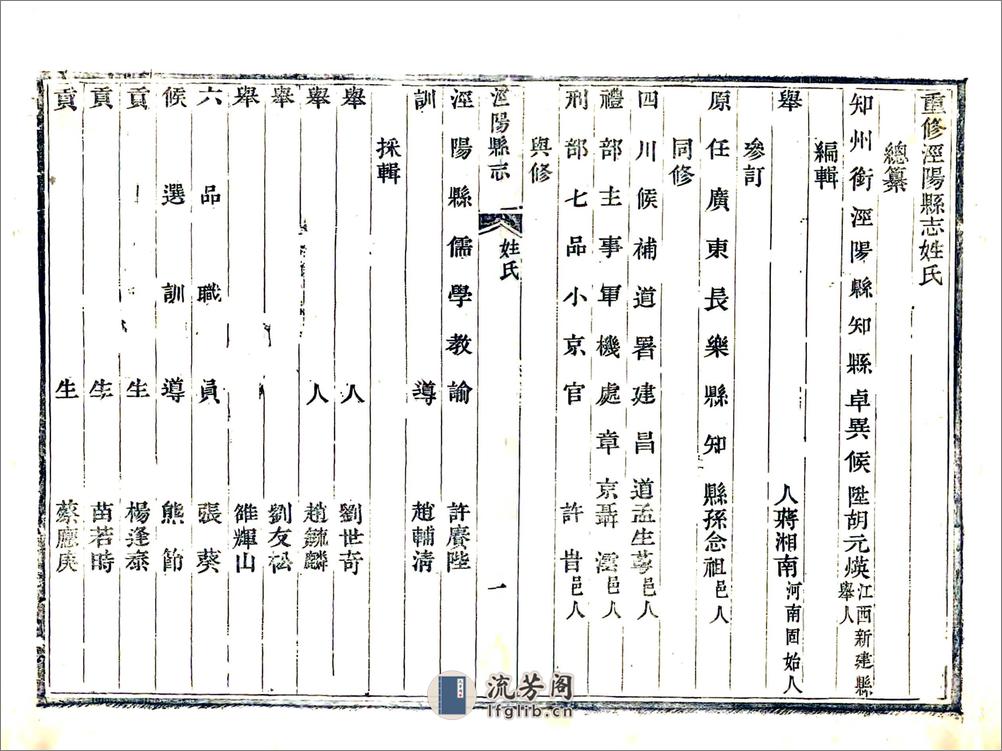 重修涇陽縣志姓氏
總纂
知州銜涇陽縣知縣卓異候陞胡元煐江西新建縣舉人
編輯
舉人蔣湘南河南固始人
參訂
原任廣東長樂縣知縣孫念祖邑人
同修
四川候補道署建昌道孟生蕚邑人
禮部主事軍機處章京聶澐邑人
刑部七品小京官許旹邑人
與修
涇陽縣志 一 姓氏 一
涇陽縣儒學教諭許賡陛
訓導趙輔清
採輯
舉人劉世奇
舉人趙毓麟
舉劉友松
舉雒輝山
六品職員張葵
候選訓導熊節
貢生楊逢泰
貢生苗若時
貢生蔡應庚
流芳阁
lfglib.cn